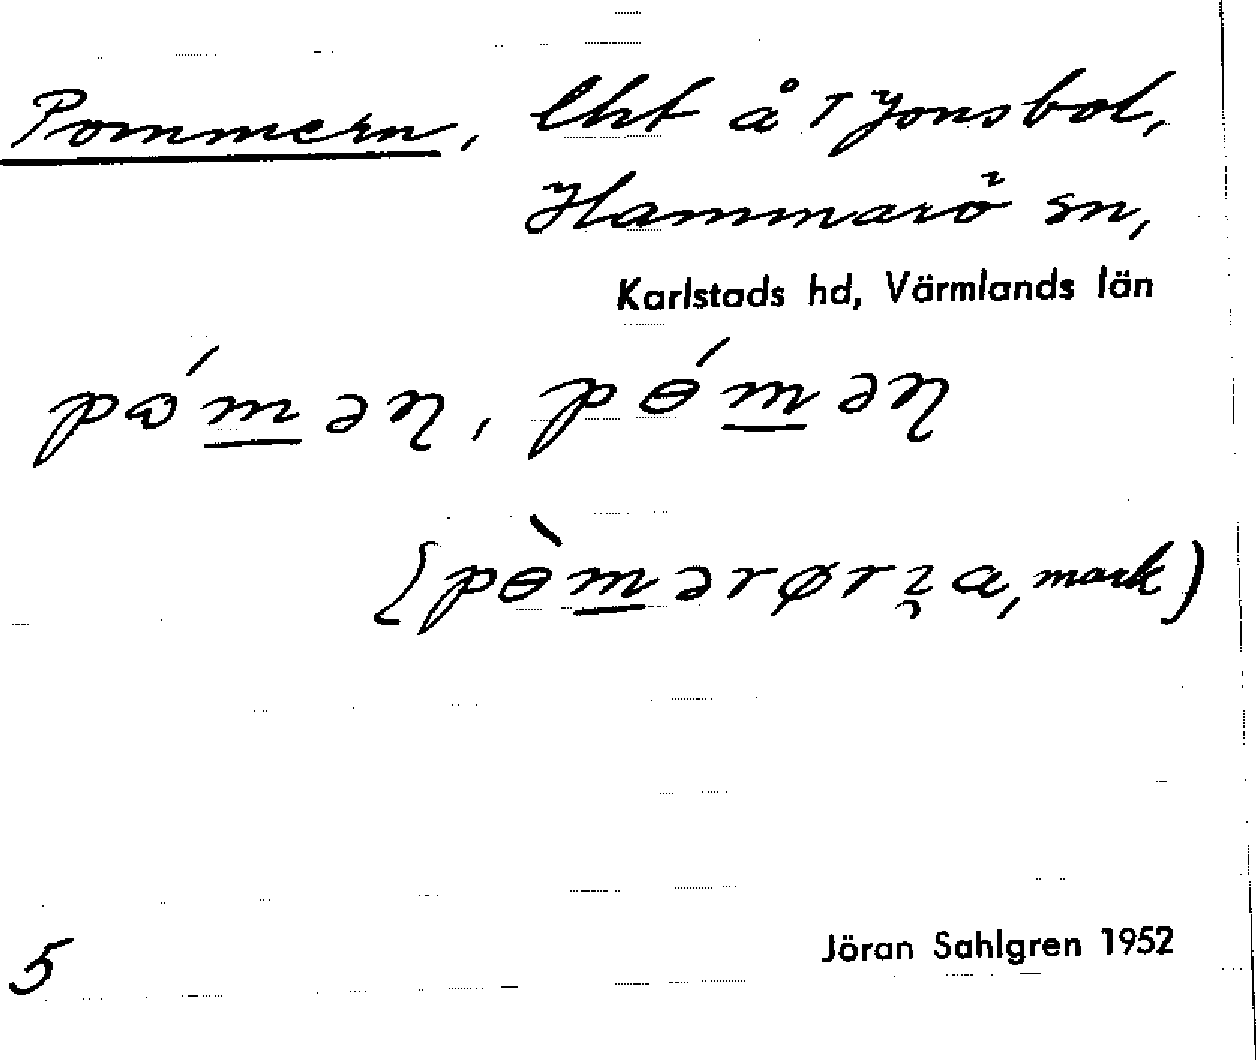 Pommern, lht å T Jonsbol,
Hammarö sn,
Karlstads hd, Värmlands län
pɷ́m̲əɳ, pɵ́m̲əɳ
(pɵ̀m̲ərørʐa, mark)
5
Jöran Sahlgren 1952